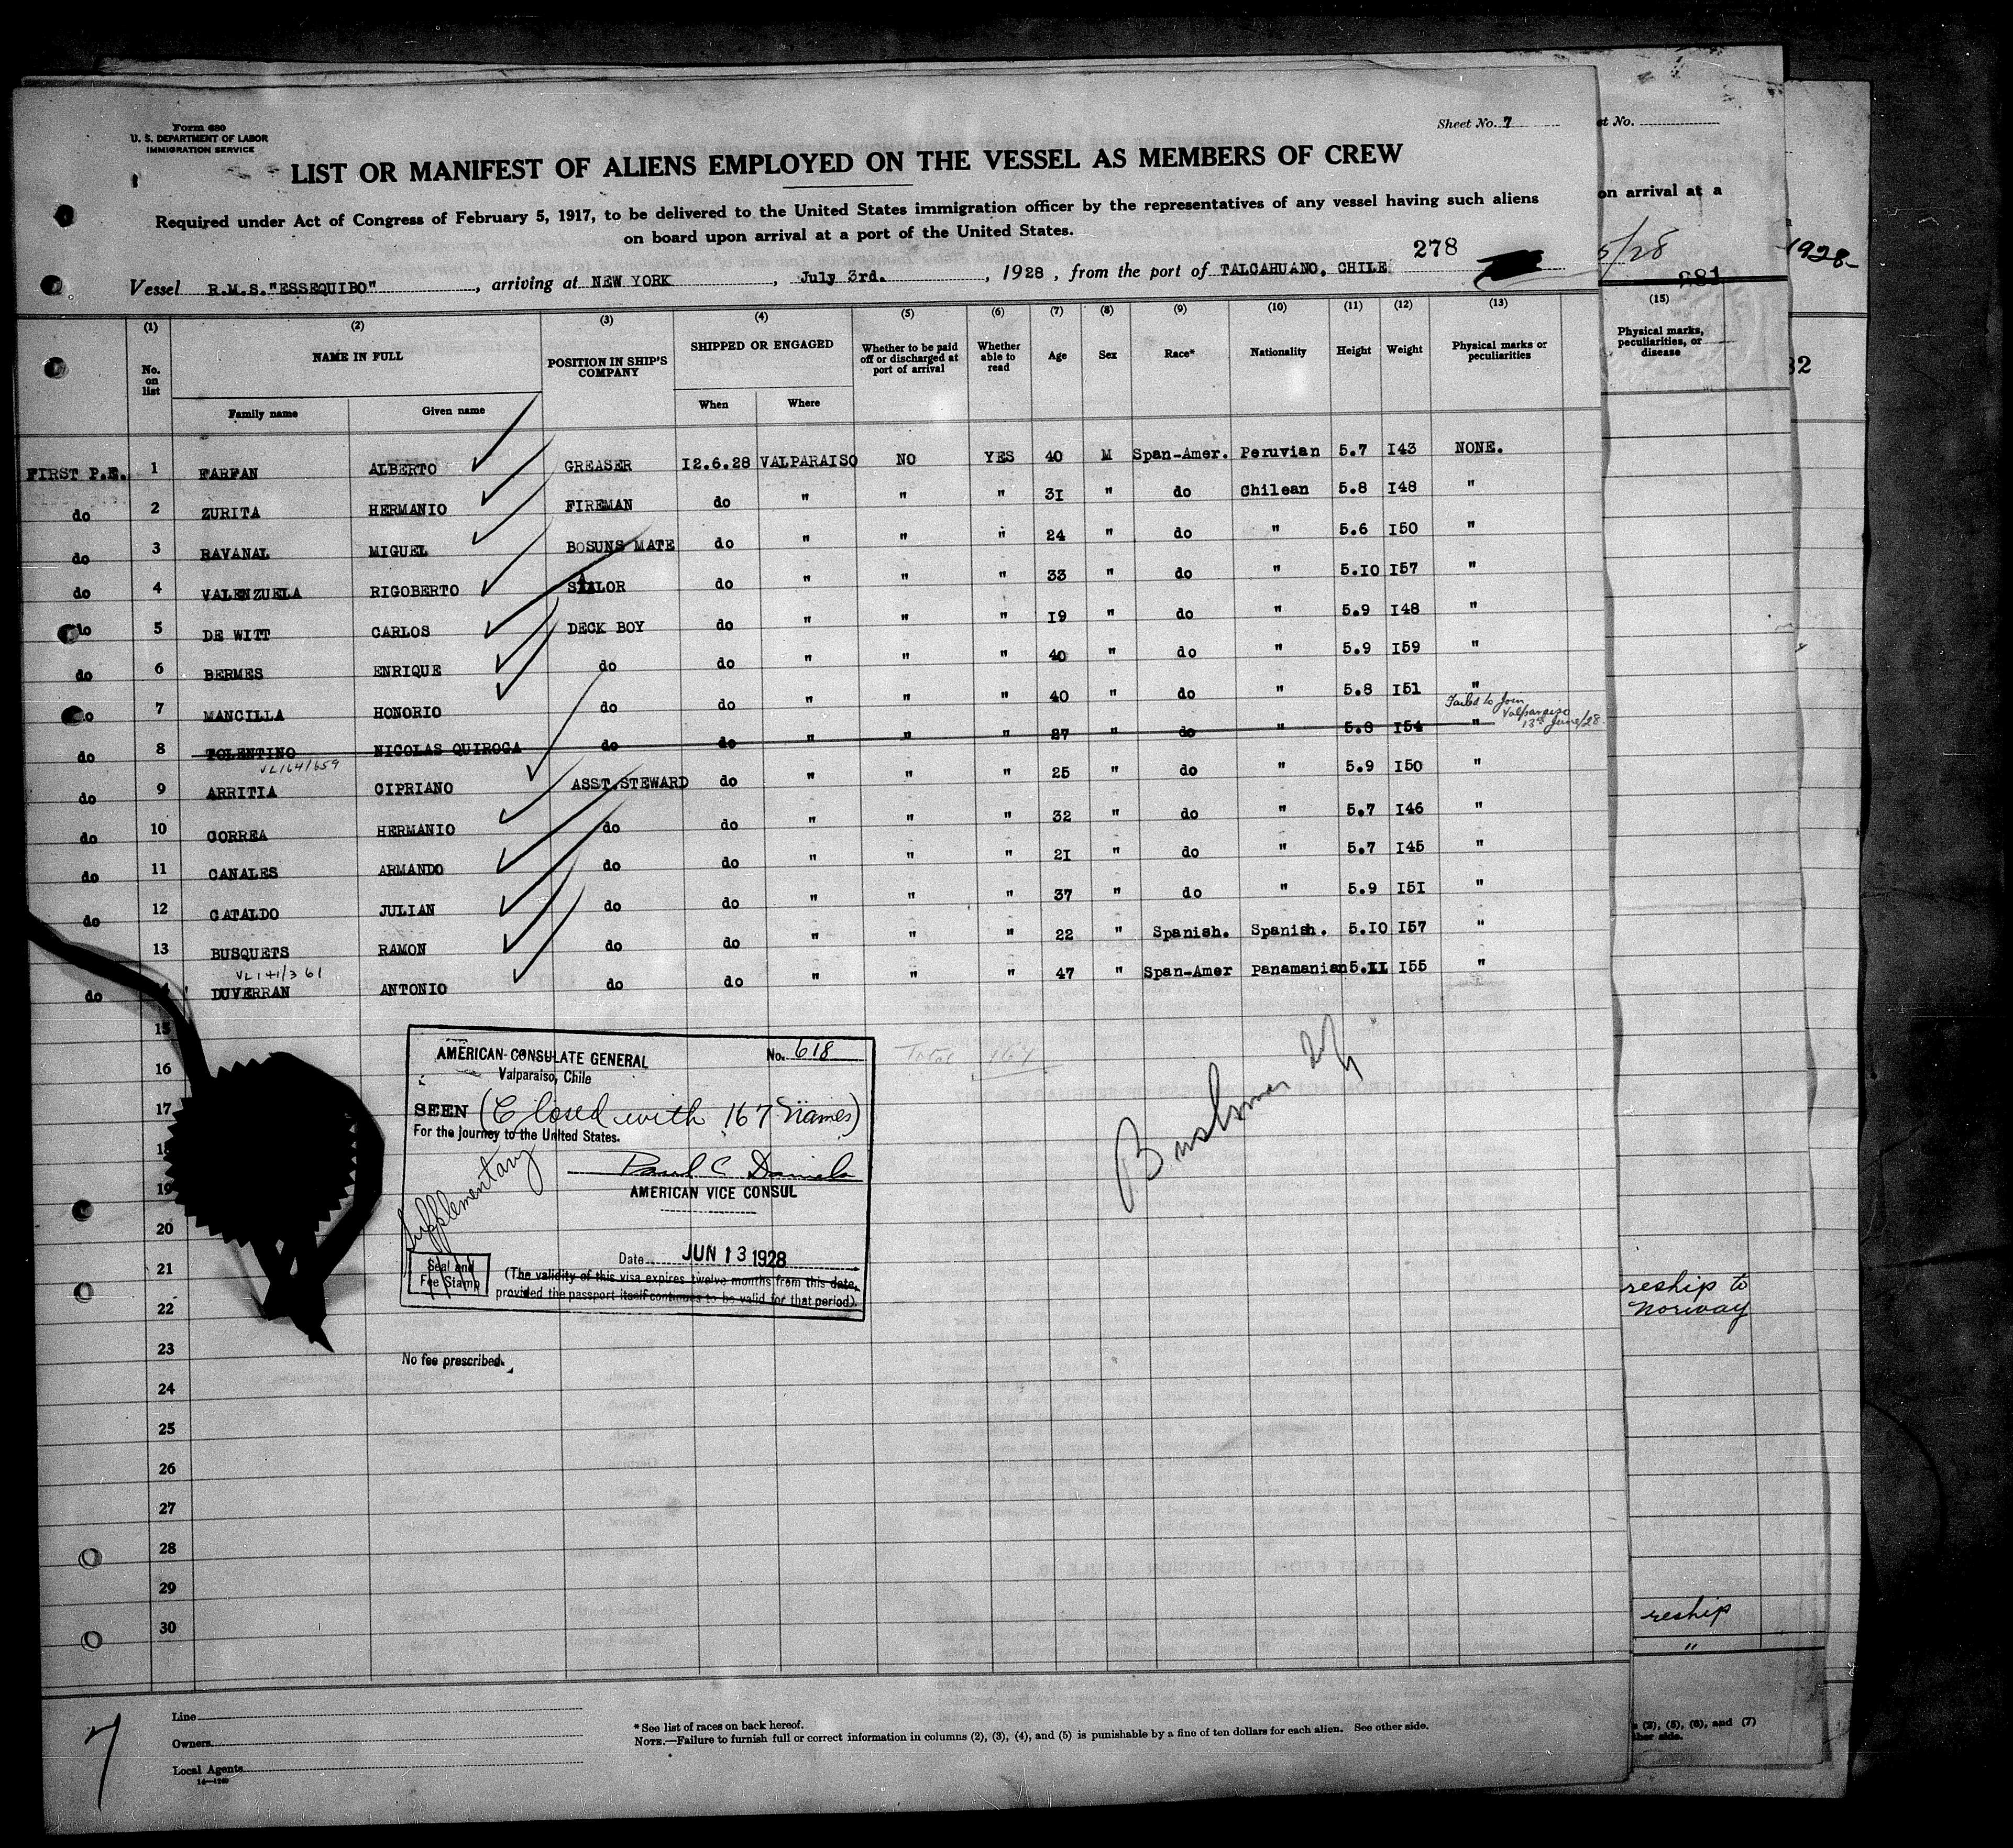 Form 680
U. S. DEPARTMENT OF LABOR
IMMIGRATION SERVICE
Sheet No. 7
LIST OR MANIFEST OF ALIENS EMPLOYED ON THE VESSEL AS MEMBERS OF CREW
Required under Act of Congress of February 5, 1917, to be delivered to the United States immigration officer by the representatives of any vessel having such aliens
on board upon arrival at a port of the United States.
278
Vessel R.M.S."ESSEQUIBO", arriving at NEW YORK, July 3rd., 1928, from the port of TALCAHUANO, CHILE
(1) (2) (3) (4) (5) (6) (7) (8) (9) (10) (11) (12) (13)
No. on list NAME IN FULL POSITION IN SHIP'S COMPANY SHIPPED OR ENGAGED Whether to be paid off or discharged at port of arrival Whether able to read Age Sex Race* Nationality Height Weight Physical marks or peculiarities
Family name Given name When Where
FIRST P.E. 1 FARFAN ALBERTO GREASER 12.6.28 VALPARAISO NO YES 40 M Span-Amer. Peruvian 5.7 143 NONE.
do 2 ZURITA HERMANIO FIREMAN do " " " 31 " do Chilean 5.8 148 "
do 3 RAVANAL MIGUEL BOSUNS MATE do " " " 24 " do " 5.6 150 "
do 4 VALENZUELA RIGOBERTO SAILOR do " " " 33 " do " 5.10 157 "
do 5 DE WITT CARLOS DECK BOY do " " " 19 " do " 5.9 148 "
do 6 BERMES ENRIQUE do do " " " 40 " do " 5.9 159 "
do 7 MANCILLA HONORIO do do " " " 40 " do " 5.8 151 "
Failed to join Valparaiso 13th June/28
do 8 TOLENTINO NICOLAS QUIROGA do do " " " 27 " do " 5.8 154 "
VL164/659
do 9 ARRITIA CIPRIANO ASST.STEWARD do " " " 25 " do " 5.9 150 "
do 10 CORREA HERMANIO do do " " " 32 " do " 5.7 146 "
do 11 CANALES ARMANDO do do " " " 21 " do " 5.7 145 "
do 12 CATALDO JULIAN do do " " " 37 " do " 5.9 151 "
13 BUSQUETS RAMON do do " " " 22 " Spanish. Spanish. 5.10 157 "
VL141/361
do DUVERRAN ANTONIO do do " " " 47 " Span-Amer Panamanian 5.11 155 "
15
16
17
18
19
20
21
22
23
24
25
26
27
28
29
30
Total 167
AMERICAN CONSULATE GENERAL No. 618
Valparaiso, Chile
SEEN (Closed with 167 names)
For the journey to the United States.
Supplementary
Paul C Daniels
AMERICAN VICE CONSUL
Date JUN 13 1928
Seal and
Fee Stamp
(The validity of this visa expires twelve months from this date,
provided the passport itself continues to be valid for that period).
No fee prescribed.
Line
Owners
Local Agents
14—1240
* See list of races on back hereof.
NOTE.—Failure to furnish full or correct information in columns (2), (3), (4), and (5) is punishable by a fine of ten dollars for each alien. See other side.
7
et No.
on arrival at a
5/28
681
(15)
Physical marks,
peculiarities, or
disease
reship to
Norway
reship
"
(2), (5), (6), and (7)
ther side.
1928
32